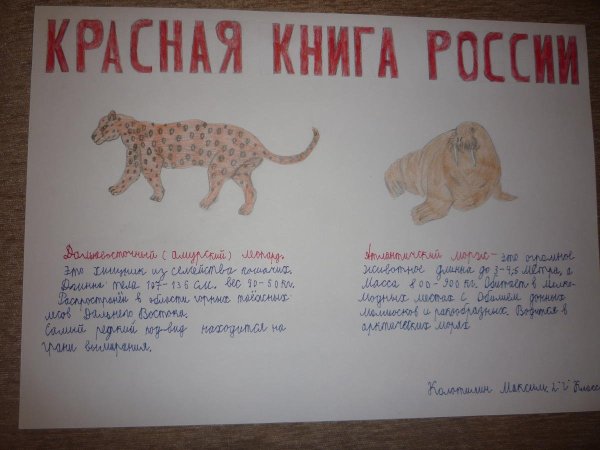 КРАСНАЯ КНИГА РОССИИ
Дальневосточный (Амурский) леопард
это хищник из семейства кошачих.
Длинна тела 107-136 см. вес 80-50 кг.
Распространён в области горных таёжных
лесов Дальнего Востока.
Самый редкий под-вид находится на
грани вымерания.
Атлантический морж - это огромное
животное длинна до 3-4,5 метра, а
Масса 800-900 кг. Обитает в мелко-
водных местах с обилием донных
моллюсков и ракообразных. Водится в
арктических морях.
Колотилин Максим, 2"г" класс